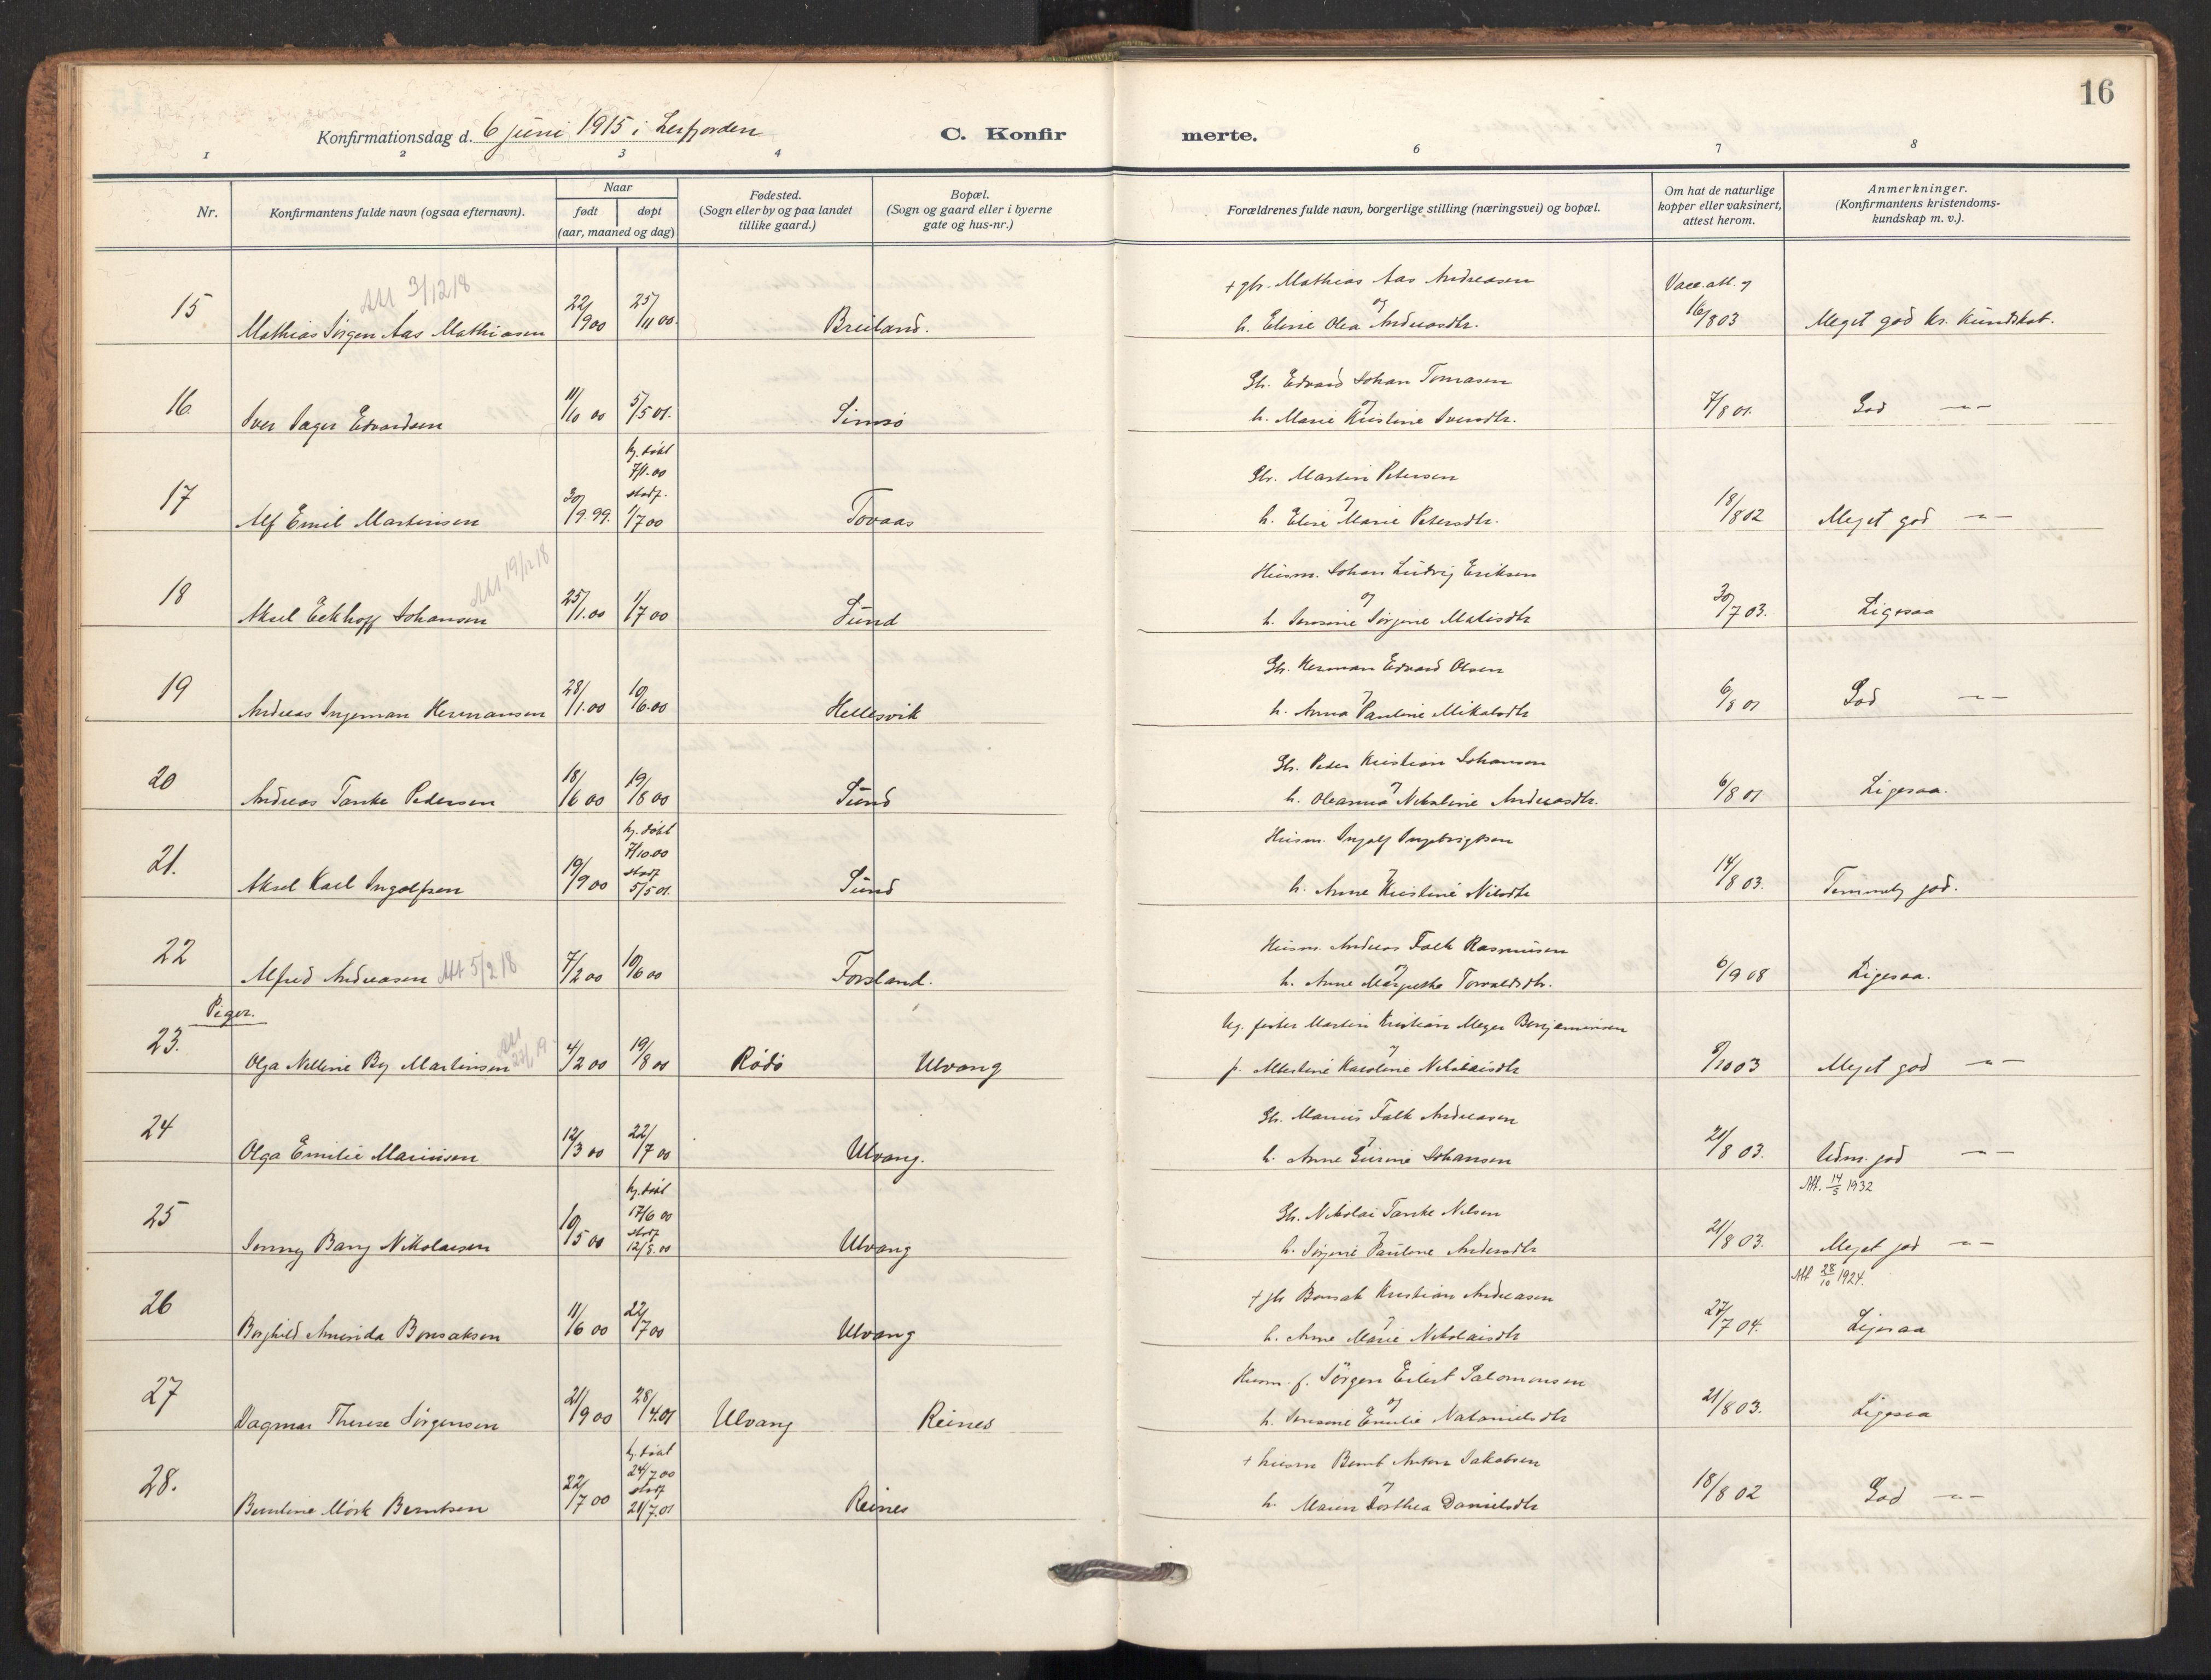 16
Konfirmationsdag d. 6 juni 1915 i Leirfjorden
C. Konfirmerte.
1 2 3 4 6 7 8
Nr.
Konfirmantens fulde navn (ogsaa efternavn).
Naar
født døpt
(aar, maaned og dag)
Fødested.
(Sogn eller by og paa landet
tillike gaard.)
Bopæl.
(Sogn og gaard eller i byerne
gate og hus-nr.)
Forældrenes fulde navn, borgerlige stilling (næringsvei) og bopæl.
Om hat de naturlige
kopper eller vaksinert,
attest herom.
Anmerkninger.
(Konfirmantens kristendoms-
kundskap m. v.).
Att 3/12 18
+ gbr. Mathias Aas Andreasen Vacc. att. og
15 Mathias Jørgen Aas Mathiasen 22/1900 25/11 00. Breiland. h. Eline Olea Andreasdtr. 16/8 03 Meget god kr. kundskab.
Gbr. Edvard Johan Tomasen
16 Iver Jager Edvardsen 11/10 00 5/5 01. h. Marie Kristine Iversdtr. 7/8 01. God — " —
hj. døbt
7/1.00
stadf.
Gbr. Martin Petersen
17 Alf Emil Martinsen 30/9.99. 1/7 00 Tovaas h. Elise Marie Petersdtr. 18/8 02 Meget god — " —
Att 19/12 18
Husm. Johan Ludvig Eriksen
18 Aksel Eckhoff Johansen 25/1.00 1/7 00 Sund h. Jensine Jørgine Matisdtr 30/7 03. Ligesaa
Gbr. Herman Edvard Olsen
19 Andreas Ingeman Hermansen 28/1.00 10/6.00 Hellesvik h. Anna Pauline Mikalsdtr 6/8 01 God — " —
Gbr. Peder Kristian Johansen
20 Andreas Tanke Pedersen 18/6 00 19/8 00 Sund h. Oleanna Nikoline Andreasdtr. 6/8 01 Ligesaa.
hj. døbt
7/10.00
stadf
Husm. Ingolf Ingebrigtsen
21. Aksel Karl Ingolfsen 19/9 00 5/5 01. Sund h. Anne Kristine Nilsdtr 14/8 03. Temmelig god.
Husm. Andreas Falk Rasmussen
22 Alfred Andreasen Att 5/2 18 7/2 00 10/6 00 Forsland. h. Anne Margrethe Torvaldsdtr. 6/9 08 Ligesaa.
Piger.
Ug. fisker Martin Kristian Meyer Benjaminsen
23. Olga Nelline By Martinsen 4/2 00 19/8 00 Rødø Ulvang p. Albertine Karoline Nikolaisdtr 8/10 03 Meget god — " —
Gbr. Marius Falk Andreasen
24 Olga Emilie Mariusen 12/3 00 22/7 00 Ulvang. h. Anne Gurine Johansen 21/8 03. Udm. god — " —
Att. 14/5 1932
hj. døbt
17/6 00
stadf
Gbr. Nikolai Tanke Nilsen
25 Jenny Bang Nikolaisen 10/5 00 12/8.00 Ulvang h. Jørgine Pauline Andersdtr 21/8 03. Meget god — " —
Att 28/10 1924.
+ gbr Bonsak Kristian Andreasen
26 Borghild Amanda Bonsaksen 11/6 00 22/7 00 Ulvang h. Anne Marie Nikolaisdtr 27/7 04. Ligesaa
Husm. f. Jørgen Eilert Salomonsen
27 Dagmar Therese Jørgensen 21/9 00 28/4.01 Ulvang Reines h. Jensine Emilie Natanielsdtr 21/8 03. Ligesaa
hj. døbt
24/7 00
stadf
+ husm Bernt Anton Jakobsen
28. Berntine Mørk Berntsen 22/7 00 21/7.01 Reines h. Maren Dorthea Danielsdtr 18/8 02 God — " —